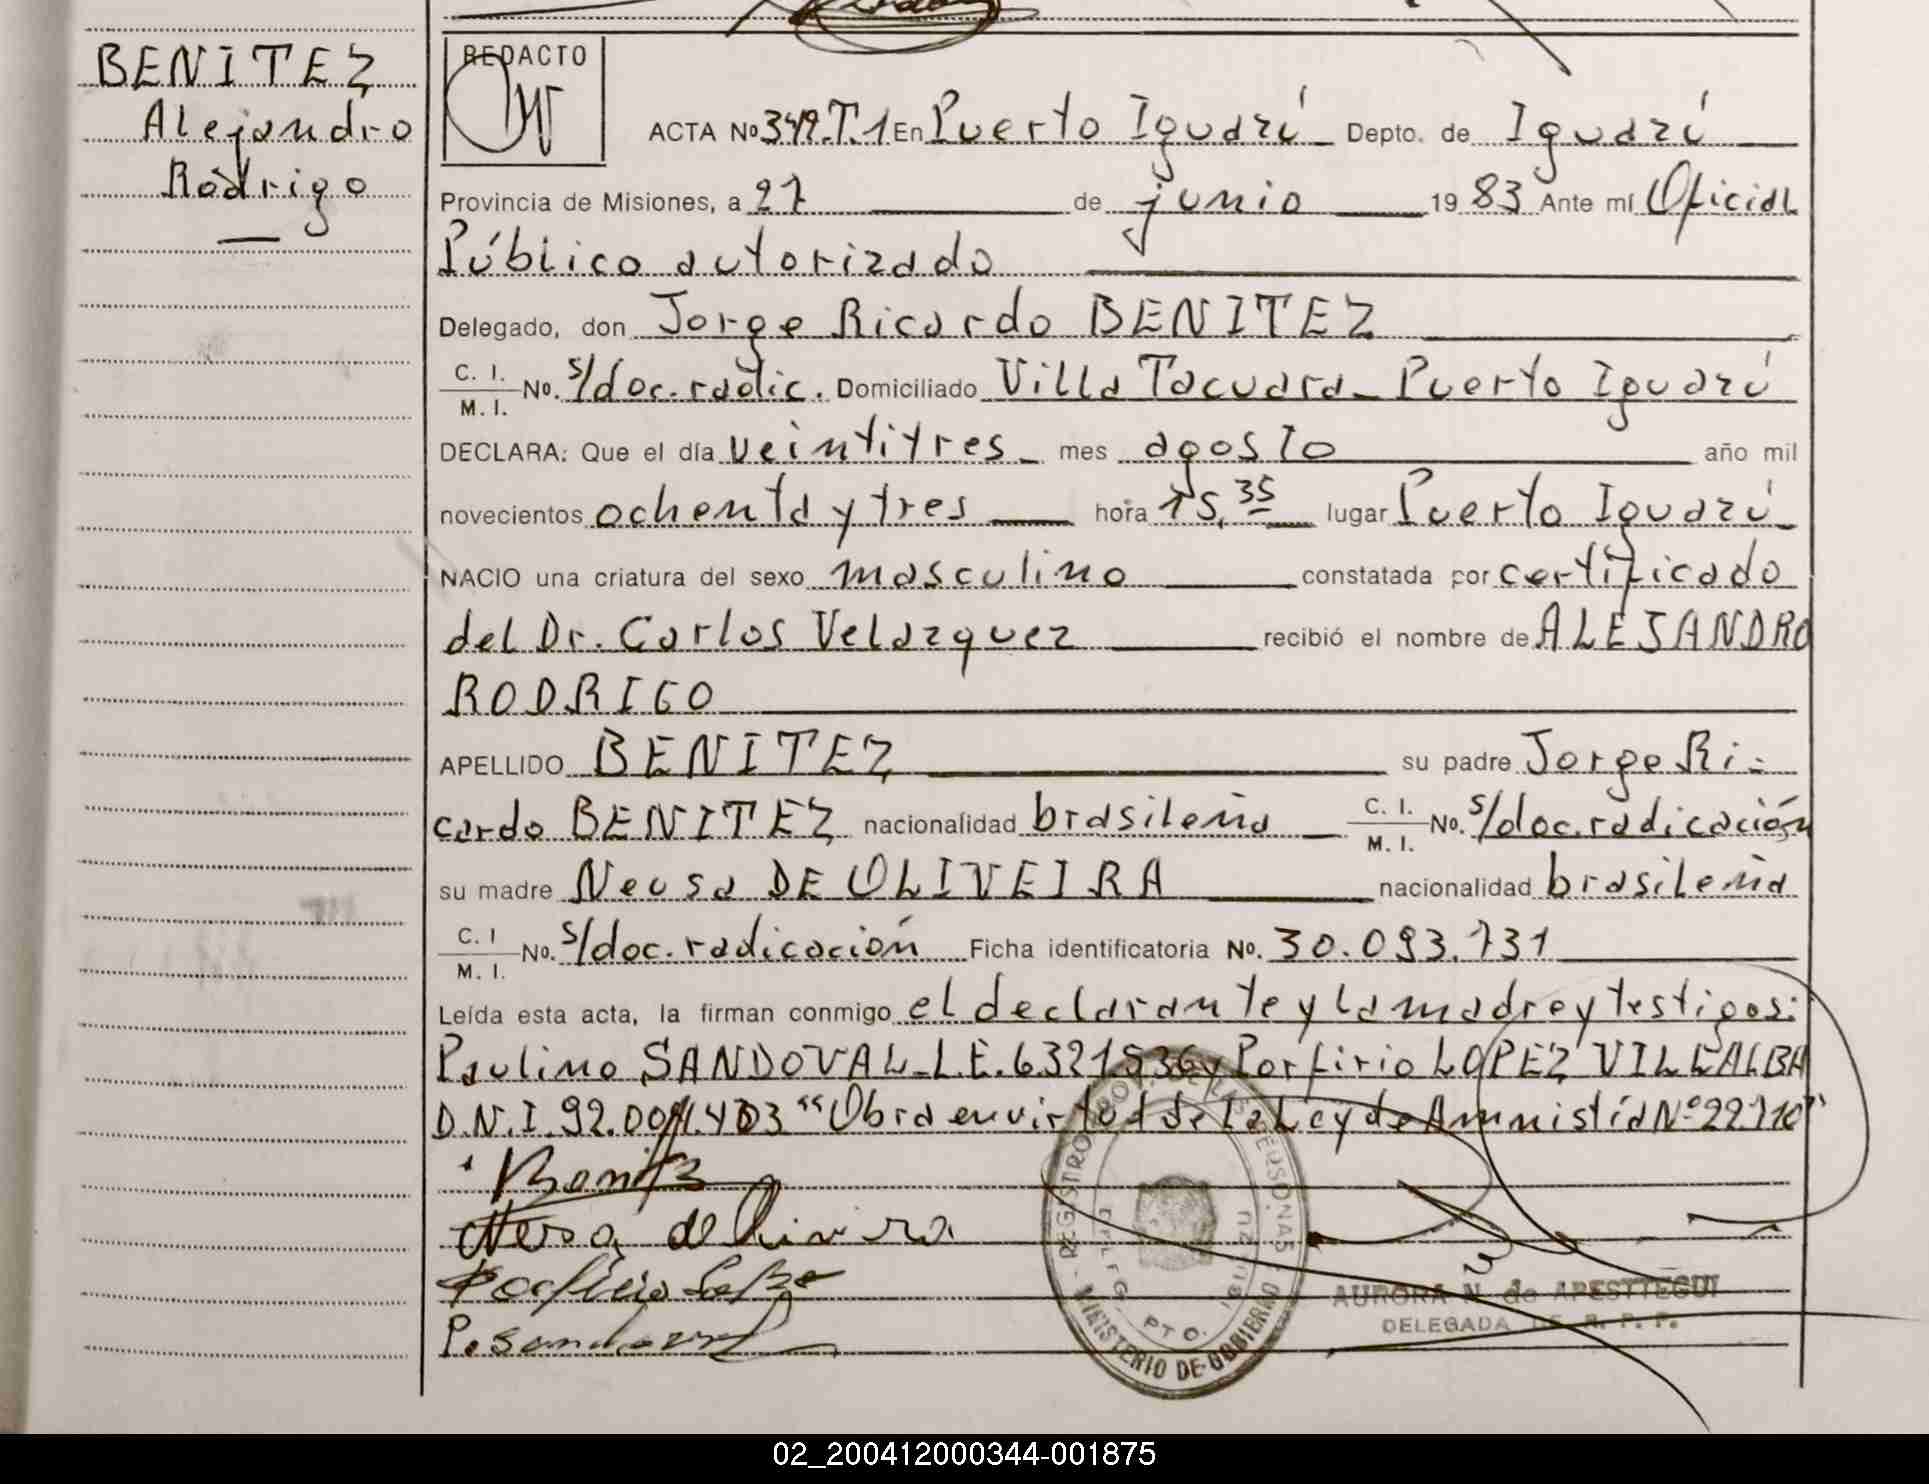 BENITEZ
Alejandro
Rodrigo
REDACTO
ACTA No 349.T.1 En Puerto Iguazú Depto. de Iguazú
Provincia de Misiones, a 27 de junio 1983 Ante mí Oficial
Público autorizado
Delegado, don Jorge Ricardo BENITEZ
C. I.
M. I. No. s/doc.radic. Domiciliado Villa Tacuara - Puerto Iguazú
DECLARA: Que el día veintitres mes agosto año mil
novecientos ochenta y tres hora 15,35 lugar Puerto Iguazú
NACIO una criatura del sexo masculino constatada por certificado
del Dr. Carlos Velazquez recibió el nombre de ALEJANDRO
RODRIGO
APELLIDO BENITEZ su padre Jorge Ri-
cardo BENITEZ nacionalidad brasileña C. I.
M. I. No. s/doc.radicación
su madre Neusa DE OLIVEIRA nacionalidad brasileña
C. I
M. I. No. s/doc.radicación Ficha identificatoria No. 30.093.731
Leída esta acta, la firman conmigo el declarante y la madre y testigos:
Paulino SANDOVAL-L.E.6321536y Porfirio LOPEZ VILLALBA
D.N.I.92.001.403 "Obra en virtud de la Ley de Amnistía Nº 22.110"
REGISTRO PROV. DE LAS PERSONAS
DELEG. PTO. IGUAZU
MINISTERIO DE GOBIERNO
AURORA N. de APESTTEGUI
DELEGADA DE R. P. P.
P. Sandoval
02_200412000344-001875